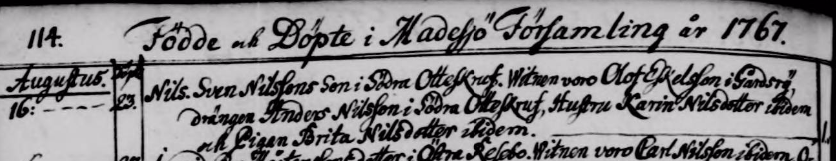 114. Födde och Döpte i Madesjö Församling år 1767.
Augustus. Döpt
16: 23. Nils. Sven Nilssons Son i Södra Otteskruf. Witnen voro Olof Eskelsson i Gårdsrÿ,
drängen Anders Nilsson i Södra Otteskruf, Hustru Karin Nilsdotter ibidem
och Pigan Brita Nilsdotter ibidem.
dotter i Östra Resebo. Witnen voro Carl Nilsson ibidem